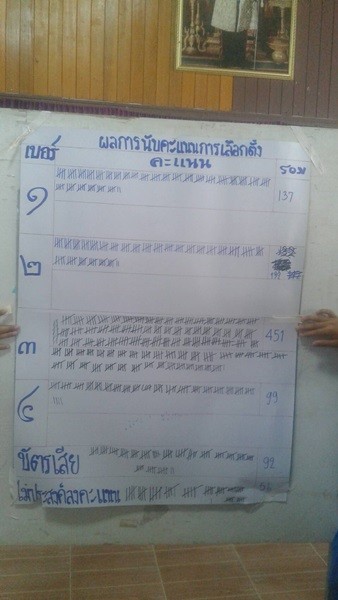 ผลการนับคะแนนการเลือกตั้ง
เบอร์ คะแนน รวม
๑ 137
๒
๓ 451
๔ 99
บัตรเสีย 92
ไม่ประสงค์ลงคะแนน